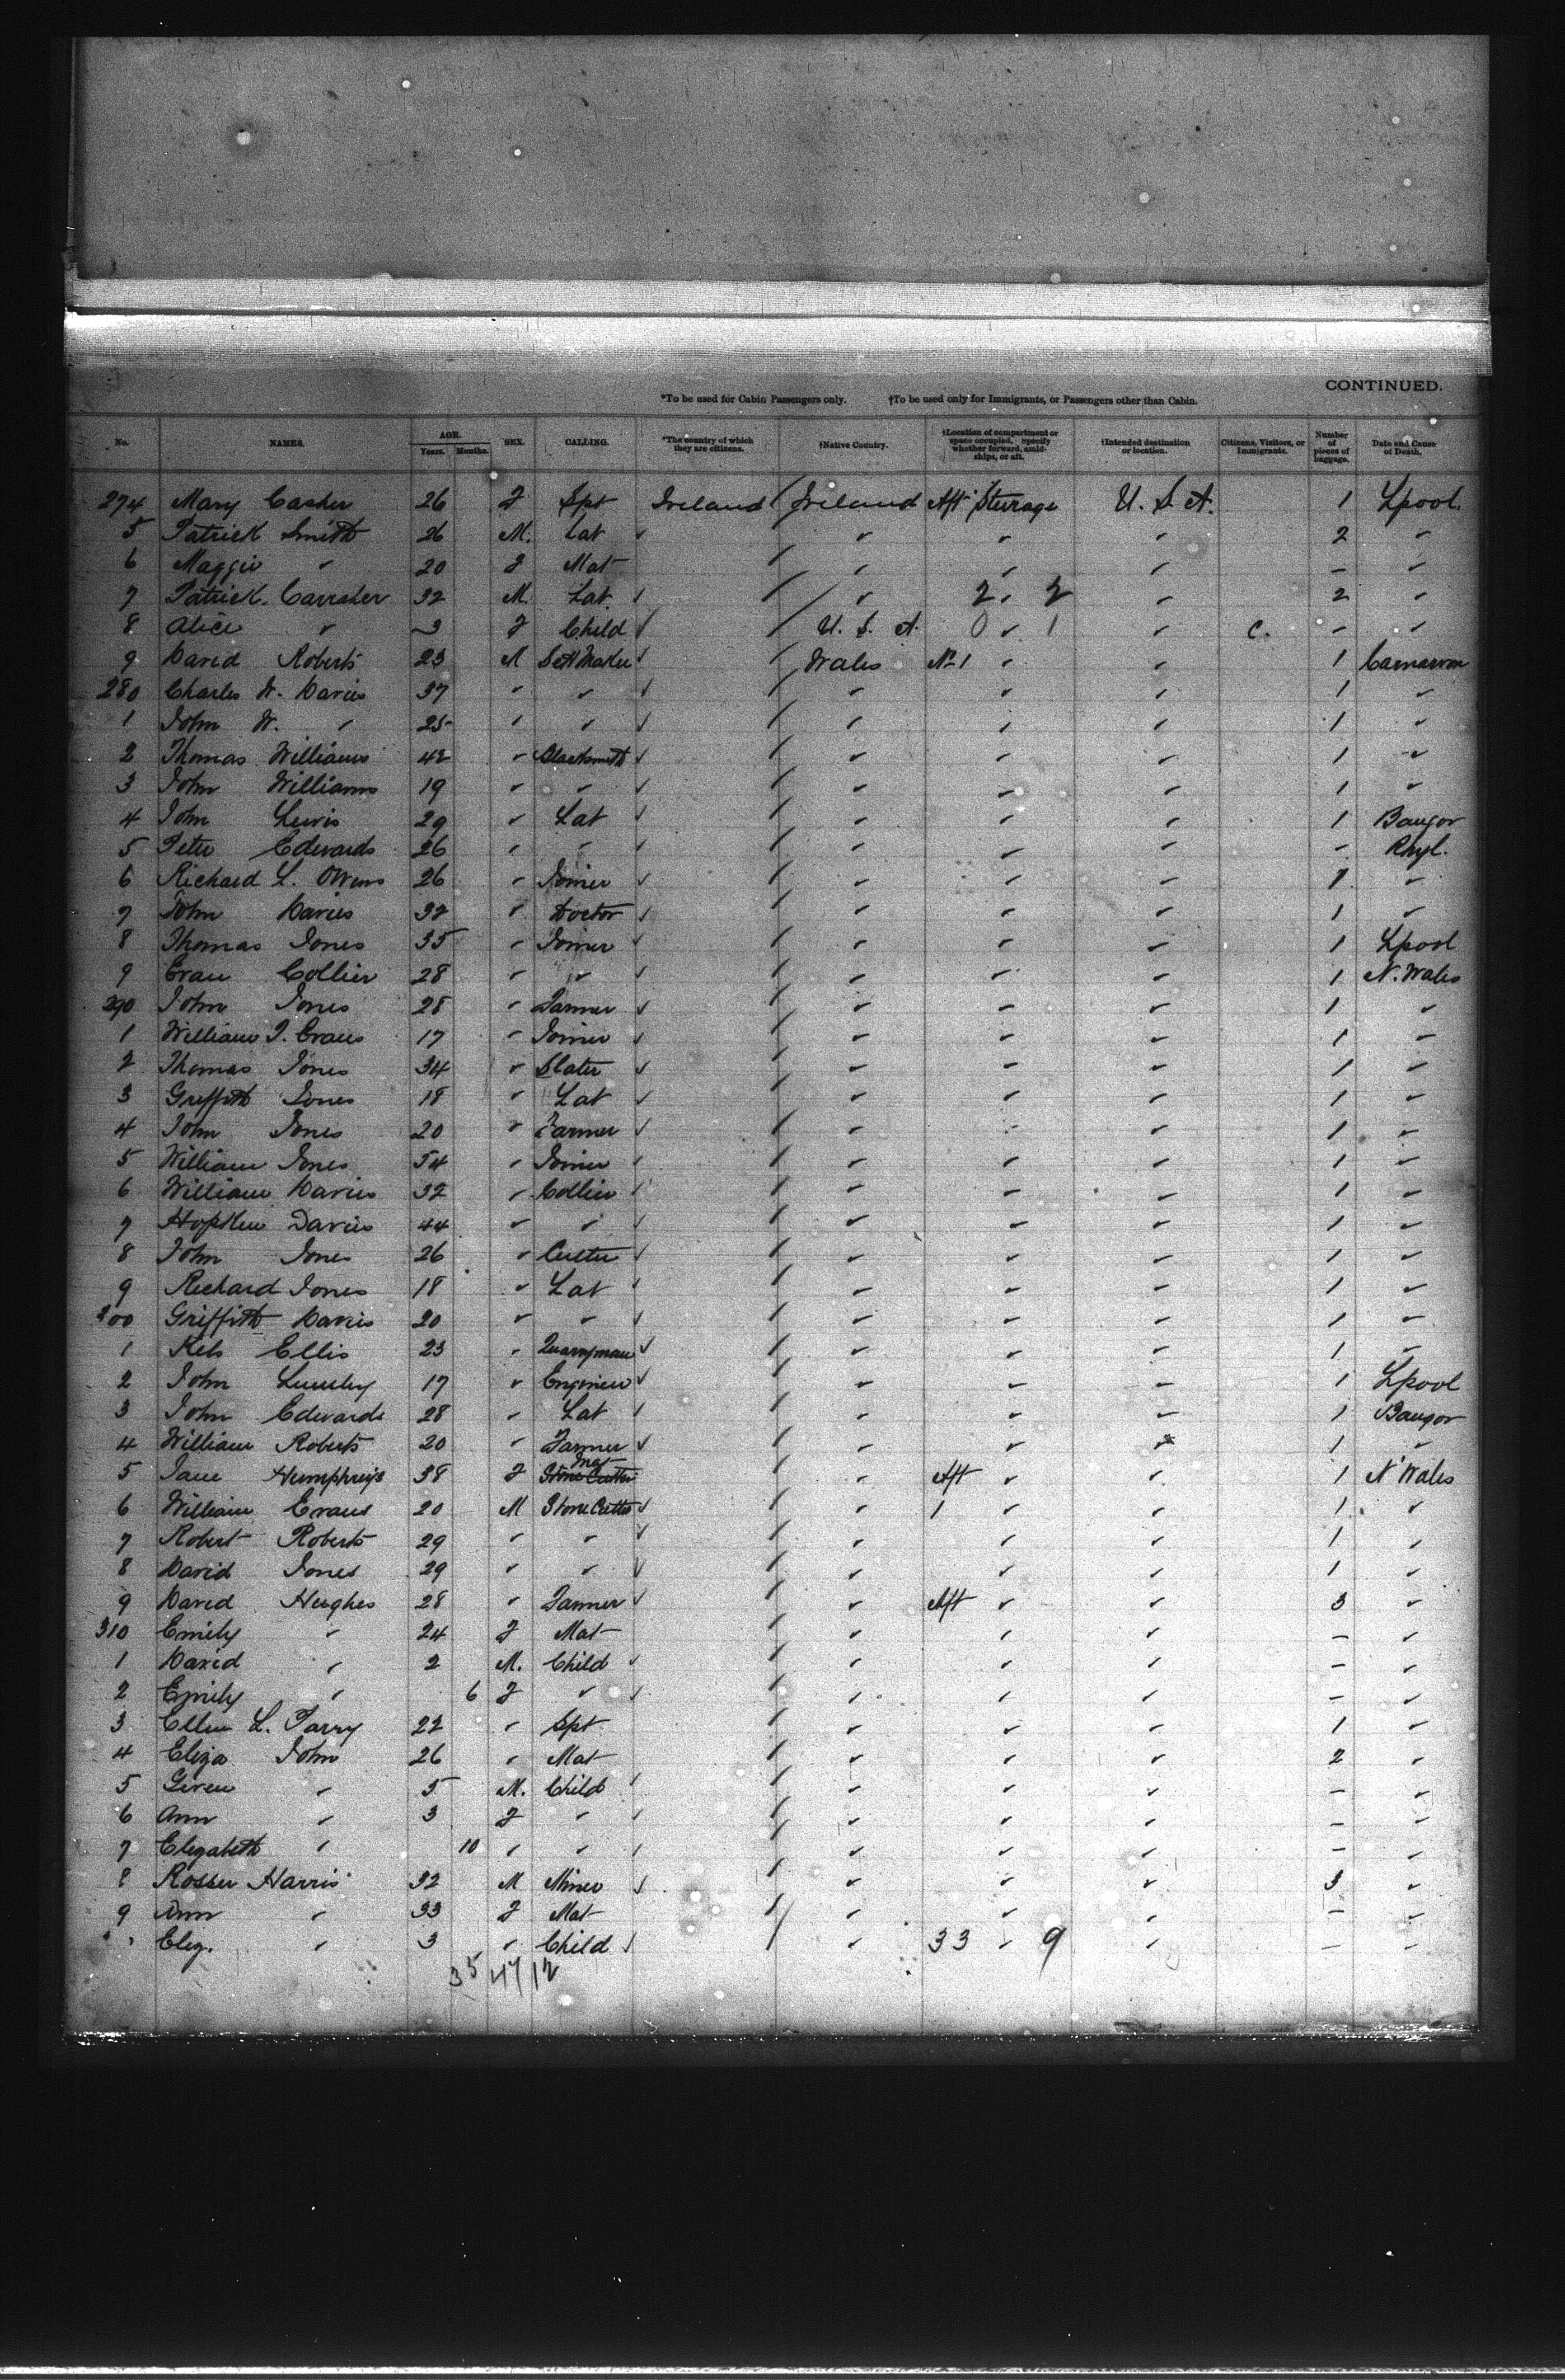 CONTINUED.
*To be used for Cabin Passengers only. †To be used only for Immigrants, or Passengers other than Cabin.
No. NAMES. AGE. Years. Months. SEX. CALLING. *The country of which they are citizens. †Native Country. †Location of compartment or space occupied, specify whether forward, amidships, or aft. †Intended destination or location. Citizens, Visitors, or Immigrants. Number of pieces of baggage. Date and Cause of Death.
274 Mary Casher 26 F Spt Ireland Ireland Aft Sturage U. S. A. 1 Lpool.
5 Patrick Smith 26 M. Lab ✓ " " " 2 "
6 Maggie " 20 F Mat " " " – "
7 Patrick Carraher 32 M. Lab ✓ " 2 " 2 " 2 "
8 Alice " 3 F Child ✓ U. S. A. 0 " 1 " C. – "
9 David Roberts 23 M Sett Maker ✓ Wales No 1 " " 1 Carnarvon
280 Charles W. Davies 37 " " ✓ " " " 1 "
1 John W. " 25 " " ✓ " " " 1 "
2 Thomas Williams 42 " Blacksmith ✓ " " " 1 "
3 John Williams 19 " " ✓ " " " 1 "
4 John Lewis 29 " Lab ✓ " " " 1 Bangor
5 Peter Edwards 26 " " ✓ " " " – Rhyl.
6 Richard L. Owens 26 " Joiner ✓ " " " 1 "
7 John Davies 32 " Doctor ✓ " " " 1 "
8 Thomas Jones 35 " Joiner ✓ " " " 1 Lpool
9 Evan Collier 28 " " ✓ " " " 1 N. Wales
290 John Jones 28 " Farmer ✓ " " " 1 "
1 William J. Evans 17 " Joiner ✓ " " " 1 "
2 Thomas Jones 34 " Slater ✓ " " " 1 "
3 Griffith Jones 18 " Lab ✓ " " " 1 "
4 John Jones 20 " Farmer ✓ " " " 1 "
5 William Jones 54 " Joiner ✓ " " " 1 "
6 William Davies 32 " Collier ✓ " " " 1 "
7 Hopkin Davies 44 " " ✓ " " " 1 "
8 John Jones 26 " Cutter ✓ " " " 1 "
9 Richard Jones 18 " Lab ✓ " " " 1 "
200 Griffith Davies 20 " " ✓ " " " 1 "
1 Ellis 23 " Quarryman ✓ " " " 1 "
2 John 17 " Engineer ✓ " " " 1 Lpool
3 John Edwards 28 " Lab ✓ " " " 1 Bangor
4 William Roberts 20 " Farmer ✓ " " " 1 "
5 Jane Humphreys 38 F Stone Cutter Mat " Aft " " 1 N Wales
6 William Evans 20 M Stone Cutter ✓ " 1 " " 1 "
7 Robert Roberts 29 " " ✓ " " " 1 "
8 David Jones 29 " " ✓ " " " 1 "
9 David Hughes 28 " Farmer ✓ " Aft " " 3 "
310 Emily " 24 F Mat " " " – "
1 David " 2 M. Child ✓ " " " – "
2 Emily " 6 F " ✓ " " " – "
3 Ellen L. Parry 22 " Spt " " " 1 "
4 Eliza John 26 " Mat " " " 2 "
5 " 5 M. Child ✓ " " " – "
6 Ann " 3 F " ✓ " " " – "
7 Elizabeth " 10 " " ✓ " " " – "
8 Rosser Harris 32 M Miner ✓ " " " 3 "
9 Ann " 33 F Mat " " " – "
Eliz. " 3 " Child ✓ " 33 " 9 " – "
35 47 12